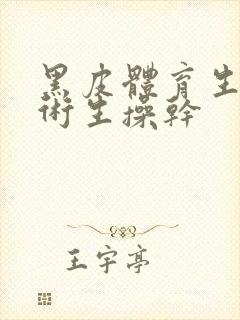 黑皮體育生
術生操幹
王宇亭